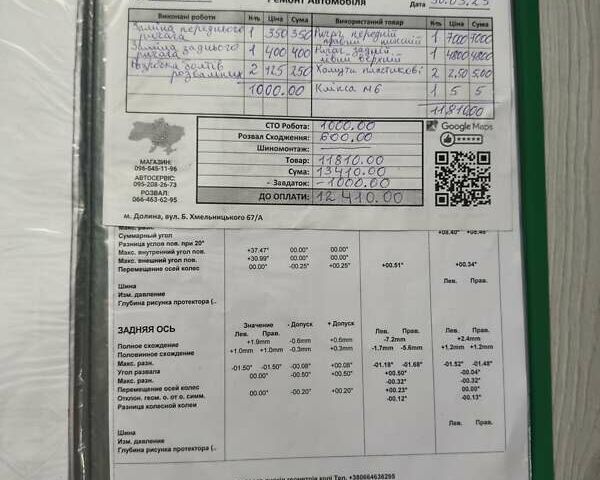 Ремонт Автомобіля
Дата 30.03.23
Виконані роботи N-ть Ціна Сума Використаний товар N-ть Ціна Сума
Заміна переднього 1 350 350 Ричаг передній 1 7000 7000
ричага правий нижній
Заміна заднього 1 400 400 Ричаг задній 1 4800 4800
ричага лівий верхній
болтів 2 125 250 Хомути пластикові 2 2,50 5,00
розвальних
1000.00 Кліпса М6 1 5 5
11810.00
СТО Робота: 1000.00
Розвал Сходження: 600.00
Шиномонтаж:
Товар: 11810.00
Сума: 13410.00
- Завдаток: -1000.00
ДО ОПЛАТИ: 12410.00
Google Maps
МАГАЗИН:
096-645-11-96
АВТОСЕРВІС:
095-208-26-73
РОЗВАЛ:
066-463-62-95
м. Долина, вул. Б. Хмельницького 67/А
Макс. разн.
Суммарный угол +08.40° +08.48°
Разница углов пов. при 20°
Макс. внутренний угол пов. +37.47° 00.00° 00.00°
Макс. внешний угол пов. +30.99° 00.00° 00.00°
Перемещение осей колес 00.00° -00.25° +00.25° +00.51° +00.34°
Лев. Прав. Лев. Прав.
Шина
Изм. давление
Глубина рисунка протектора (..
ЗАДНЯЯ ОСЬ Значение - Допуск + Допуск
Лев. Прав. Лев. Прав. Лев. Прав. Лев. Прав. Лев. Прав.
Полное схождение +1.9mm -0.6mm +0.6mm -7.2mm +2.4mm
Половинное схождение +1.0mm +1.0mm -0.3mm +0.3mm -1.7mm -5.6mm +1.2mm +1.2mm
Макс. разн.
Угол развала -01.50° -01.50° -00.08° +00.08° -01.18° -01.68° -01.52° -01.48°
Макс. разн. 00.00° -00.50° +00.50° +00.50° -00.04°
Перемещение осей колес -00.32° -00.32°
Отклон. геом. о. от о. симм. 00.00° -00.20° +00.20° +00.23° 00.00°
Разница колесной колеи -00.12° -00.13°
Лев. Прав. Лев. Прав.
Шина
Изм. давление
Глубина рисунка протектора (..
геометрія колі Тел. +380664636295